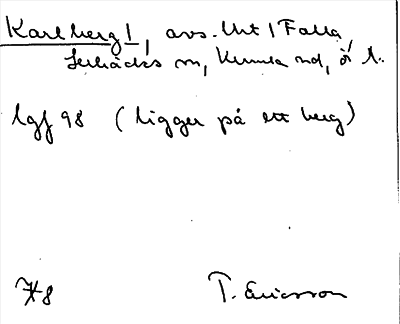 Karlberg 1, avs. Uht 1 Falla,
Lerbäcks sn, Kumla hd, ö l.
lgf 98 (ligger på ett berg)
T. Ericsson